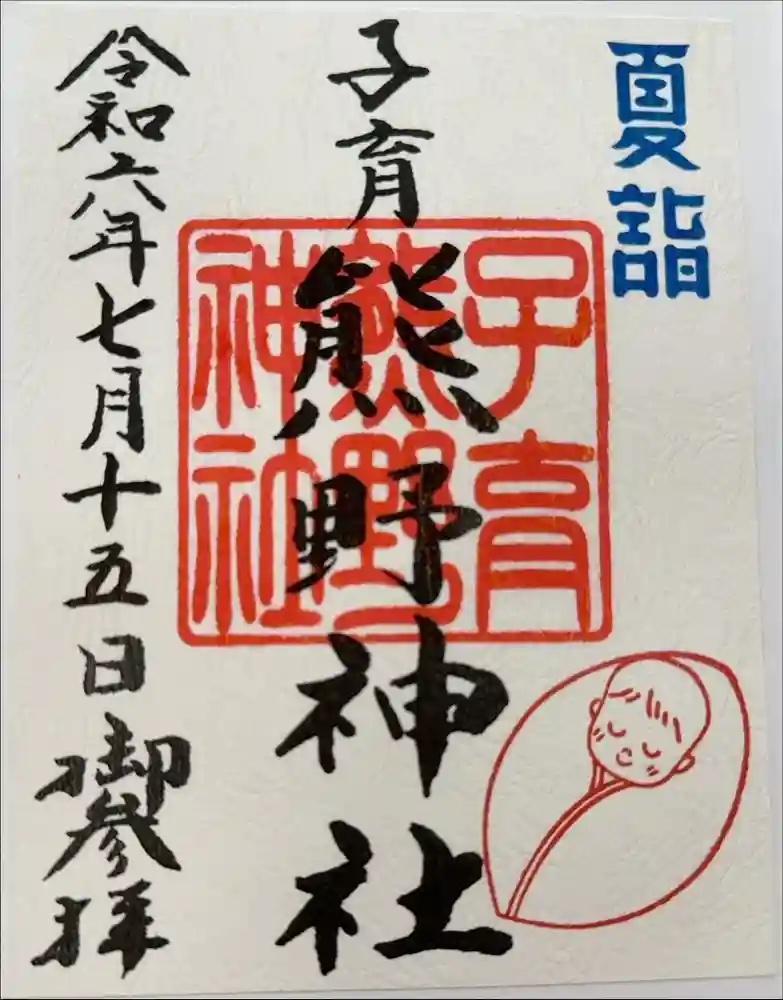 夏詣
子育熊野神社
子育
熊野
神社
令和六年七月十五日御参拝